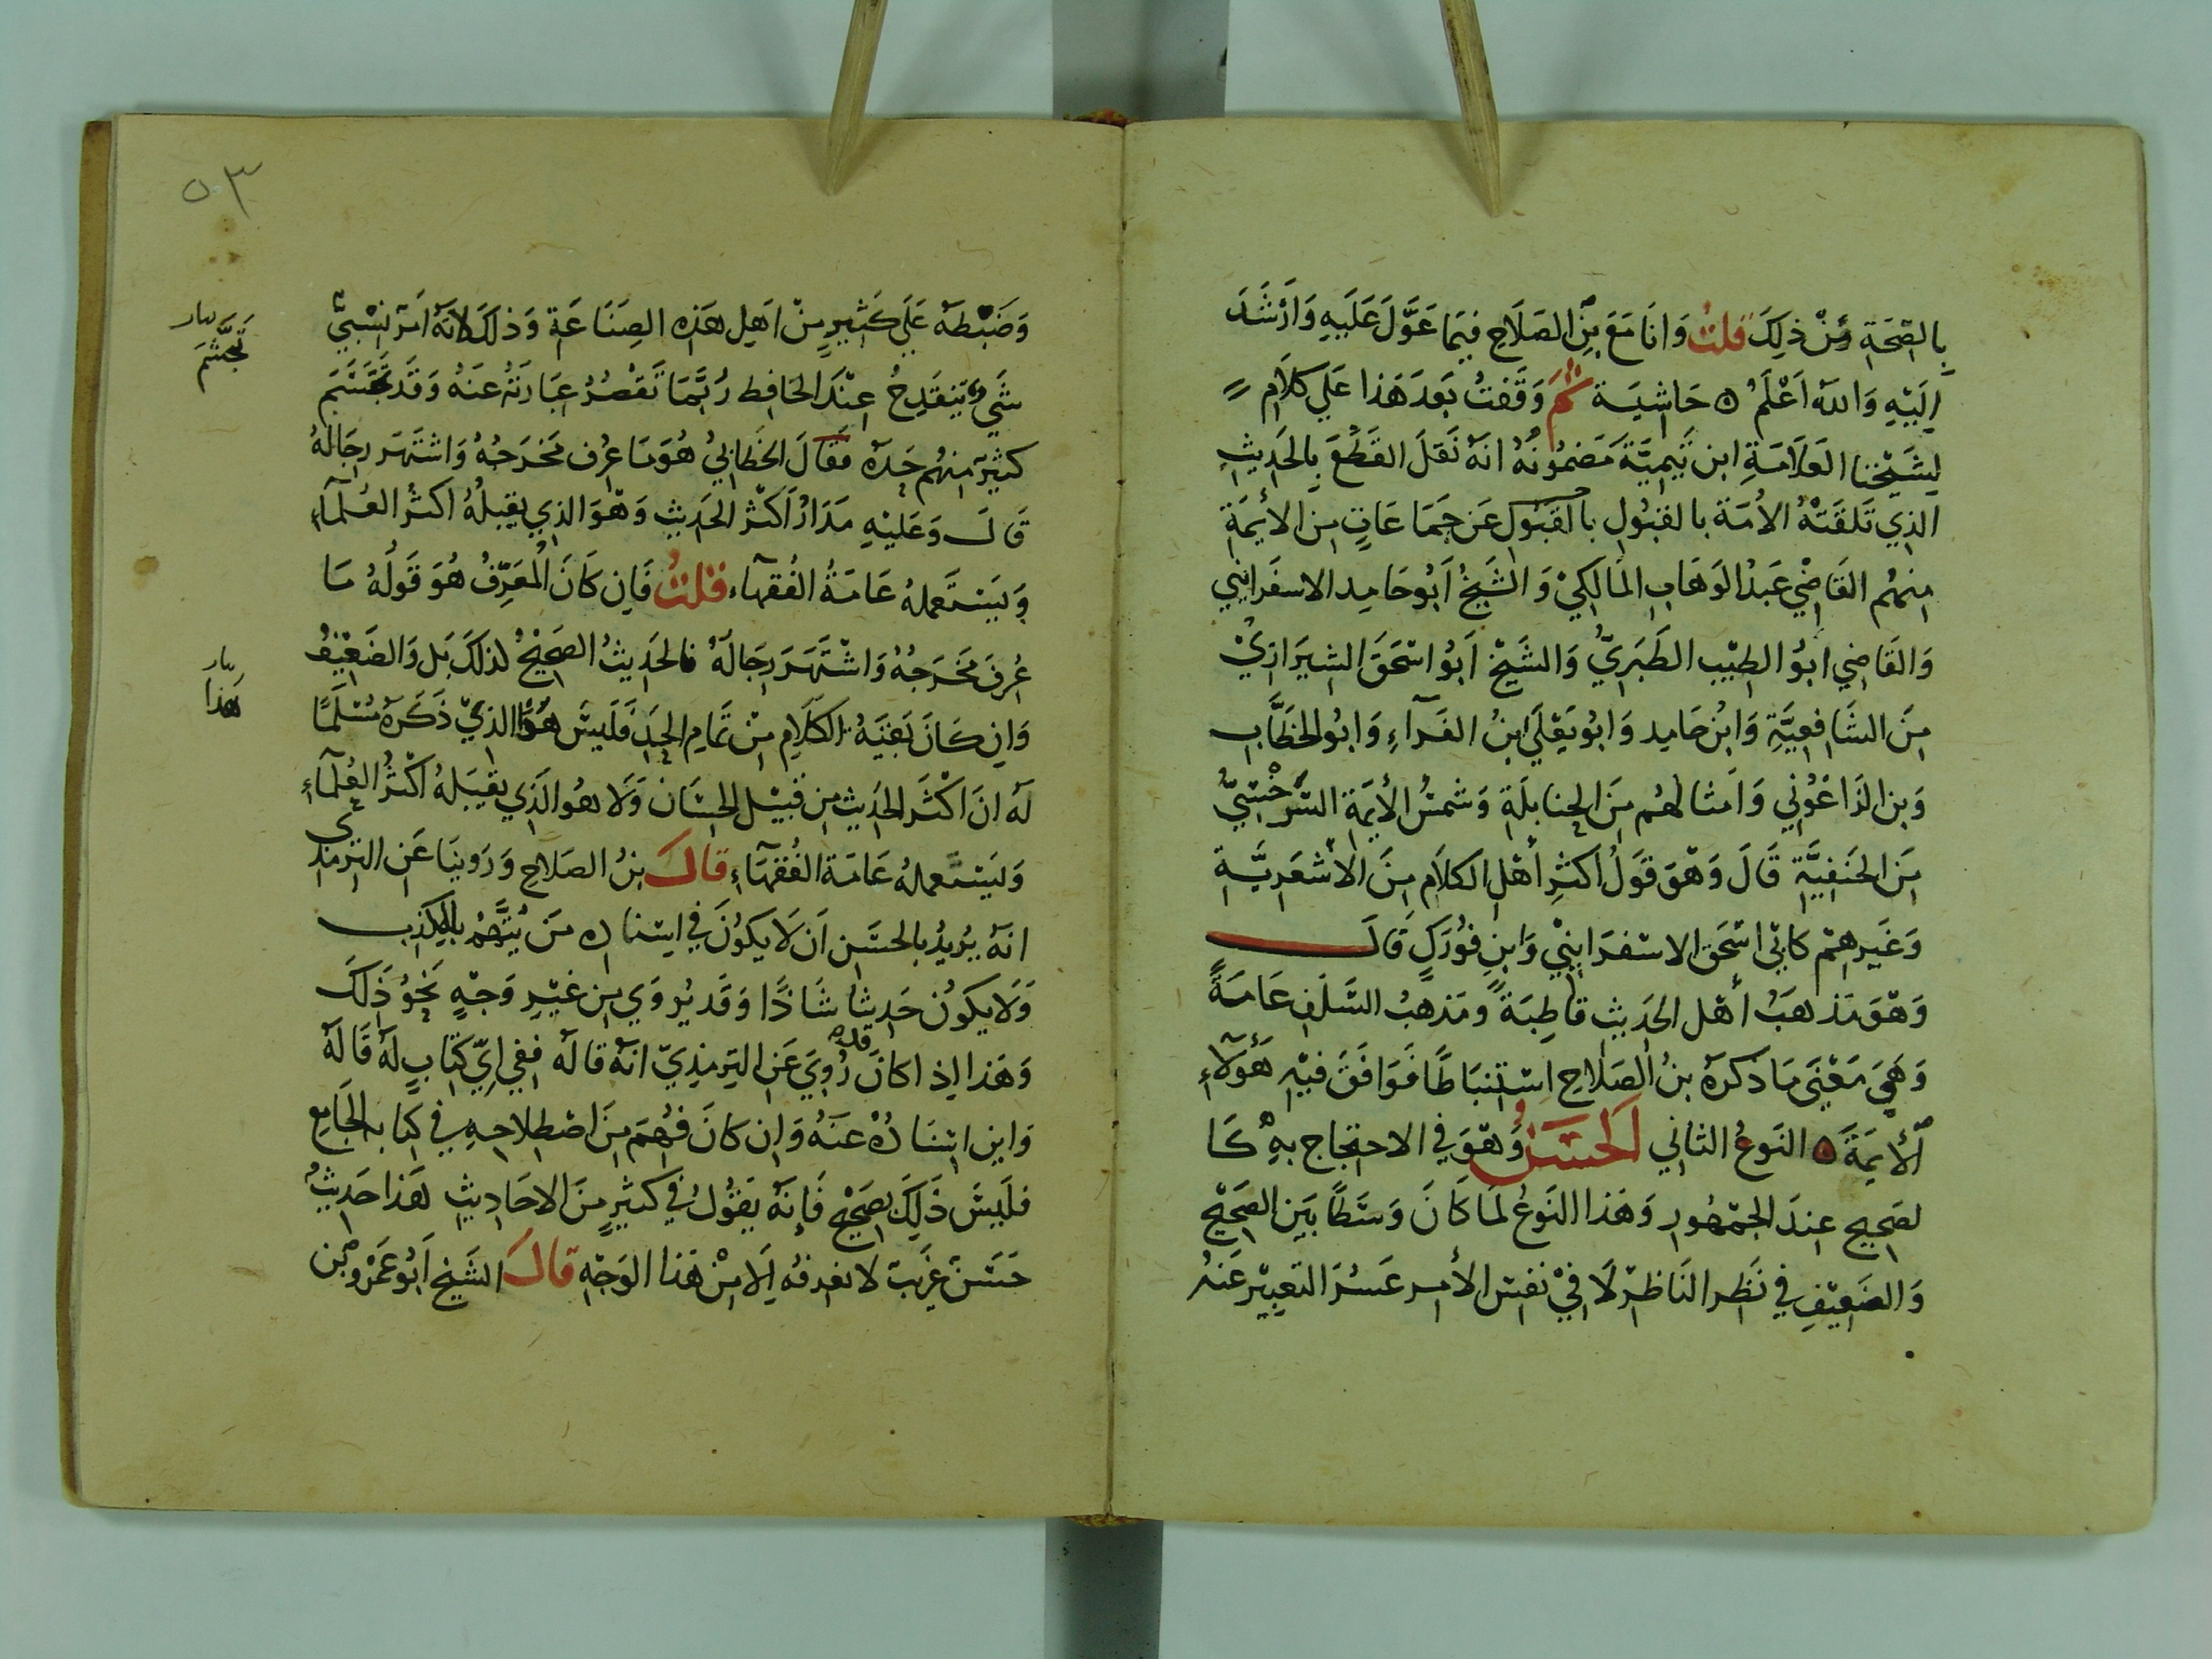 بالصحة من ذلك قلت وانا مع بن الصلاح فيما عول عليه وارشد
اليه والله اعلم ه حاشية ثم وقفت بعد هذا علي كلام
لشيخنا العلامة ابن تيمية مضمونه انه نقل القطع بالحديث
الذي تلقته الأمة بالقبول بالقبول عن جماعات من الأيمة
منهم القاضي عبد الوهاب المالكي والشيخ أبو حامد الاسفرايني
والقاضي ابو الطيب الطبري والشيخ ابو اسحق الشيرازي
من الشافعية وابن حامد وابو يعلي ابن الفرآء وابو الخطاب
وبن الزاغوني وامثالهم من الحنابلة وشمس الأيمة السرخسي
من الحنفية قال وهو قول اكثر أهل الكلام من الأشعرية
وغيرهم كابي اسحق الاسفرايني وابن فورك قال
وهو مذهب أهل الحديث قاطبة ومذهب السلف عامة
وهي معني ما ذكره بن الصلاح استنباطا فوافق فيه هؤلآء
الأيمة ه النوع الثاني الحسن وهو في الاحتجاج به كا
لصحيح عند الجمهور وهذا النوع لما كان وسطا بين الصحيح
والضعيف في نظر الناظر لا في نفس الأمر عسر التعبير عنه
٥٣
وضبطه علي كثير من اهل هذه الصناعة وذلك لانه امر نسبي
شيء ينقدح عند الحافظ ربما تقصر عبارته عنه وقد تجشم
كثير منهم حده فقال الخطابي هو ما عرف مخرجه واشتهر رجاله
قال وعليه مدار اكثر الحديث وهو الذي يقبله اكثر العلمآء
ويستعمله عامة الفقهآء قلت فان كان المعرف هو قوله ما
عرف مخرجه واشتهر رجاله فالحديث الصحيح لذلك بل والضعيف
وان كان بقية الكلام من تمام الحد فليس هو الذي ذكره مسلما
له ان اكثر الحديث من قبيل الحسان ولا هو الذي يقبله اكثر العلمآء
وليستعمله عامة الفقهآء قال بن الصلاح وروينا عن الترمذي
انه يريد بالحسن ان لا يكون في اسناده من يتهم بالكذب
ولا يكون حديثا شاذا وقد يروي من غير وجه نحو ذلك
وهذا إذا كان قد روي عن الترمذي انه قاله ففي اي كتاب له قاله
واين اسناده عنه وان كان فهم من اصطلاحه في كتابه الجامع
فليس ذلك بصحيح فإنه يقول في كثير من الاحاديث هذا حديث
حسن غريب لا نعرفه الا من هذا الوجه قال الشيخ ابو عمرو بن
تجشم
هذا